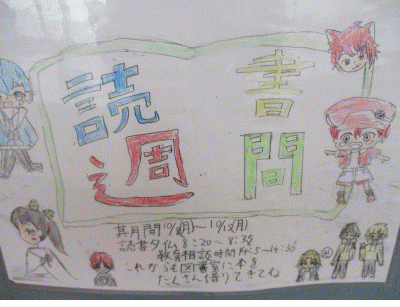 読書
週間
其月間10/3(月)〜10/13(月)
読書タイム 8:20〜8:35
教育相談時間 14:5〜14:50
これからも図書室に本を
たくさん借りてきてね